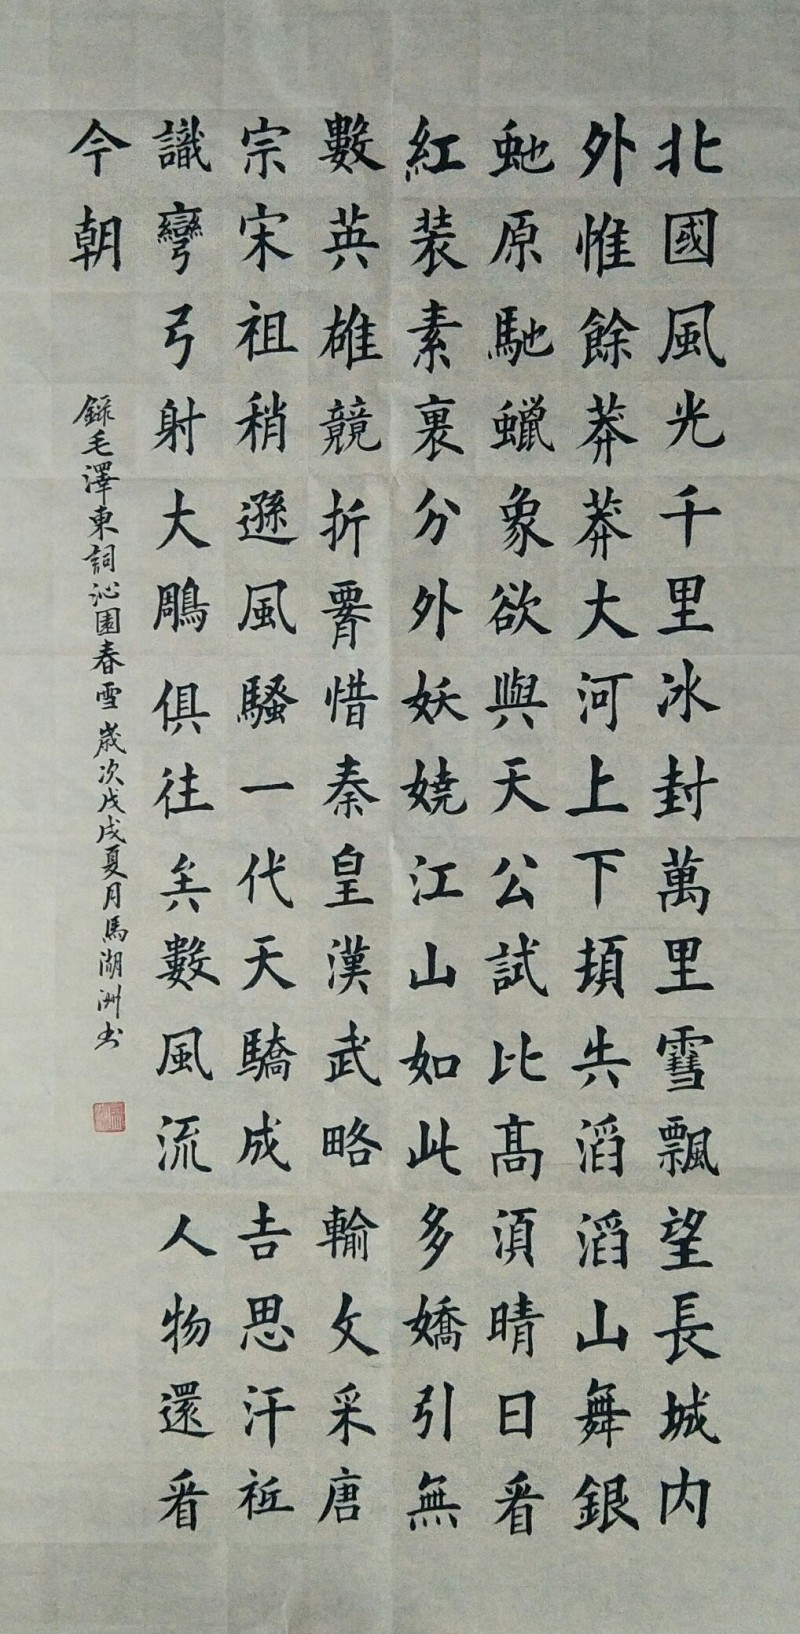 北國風光千里冰封萬里雪飄望長城内
外惟餘莽莽大河上下頓失滔滔山舞銀
虵原馳蠟象欲與天公試比髙須晴日看
紅装素裹分外妖嬈江山如此多嬌引無
數英雄競折腰惜秦皇漢武略輸文采唐
宗宋祖稍遜風騷一代天驕成吉思汗祗
識彎弓射大鵰俱往矣數風流人物還看
今朝
錄毛澤東詞沁園春雪 歲次戊戌夏月馬湖洲书